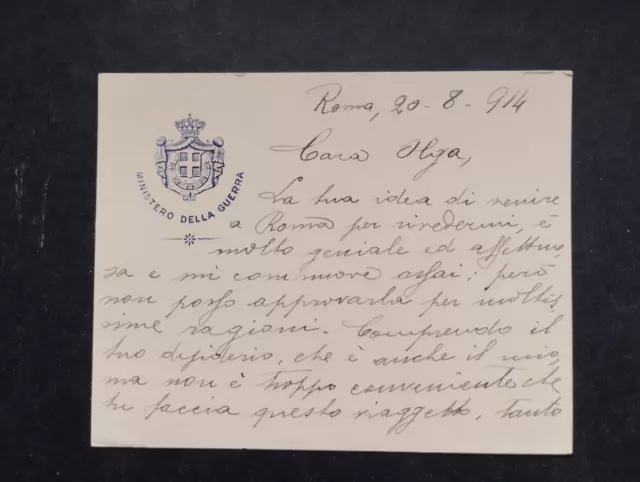 Roma, 20-8-914
MINISTERO DELLA GUERRA
Cara Olga,
La tua idea di venire
a Roma per rivedermi, è
molto geniale ed affettuo,
sa e mi commuove assai; però
non posso approvarla per moltis,
sime ragioni. Comprendo il
tuo desiderio, che è anche il mio,
ma non è troppo conveniente che
tu faccia questo viaggetto, tanto